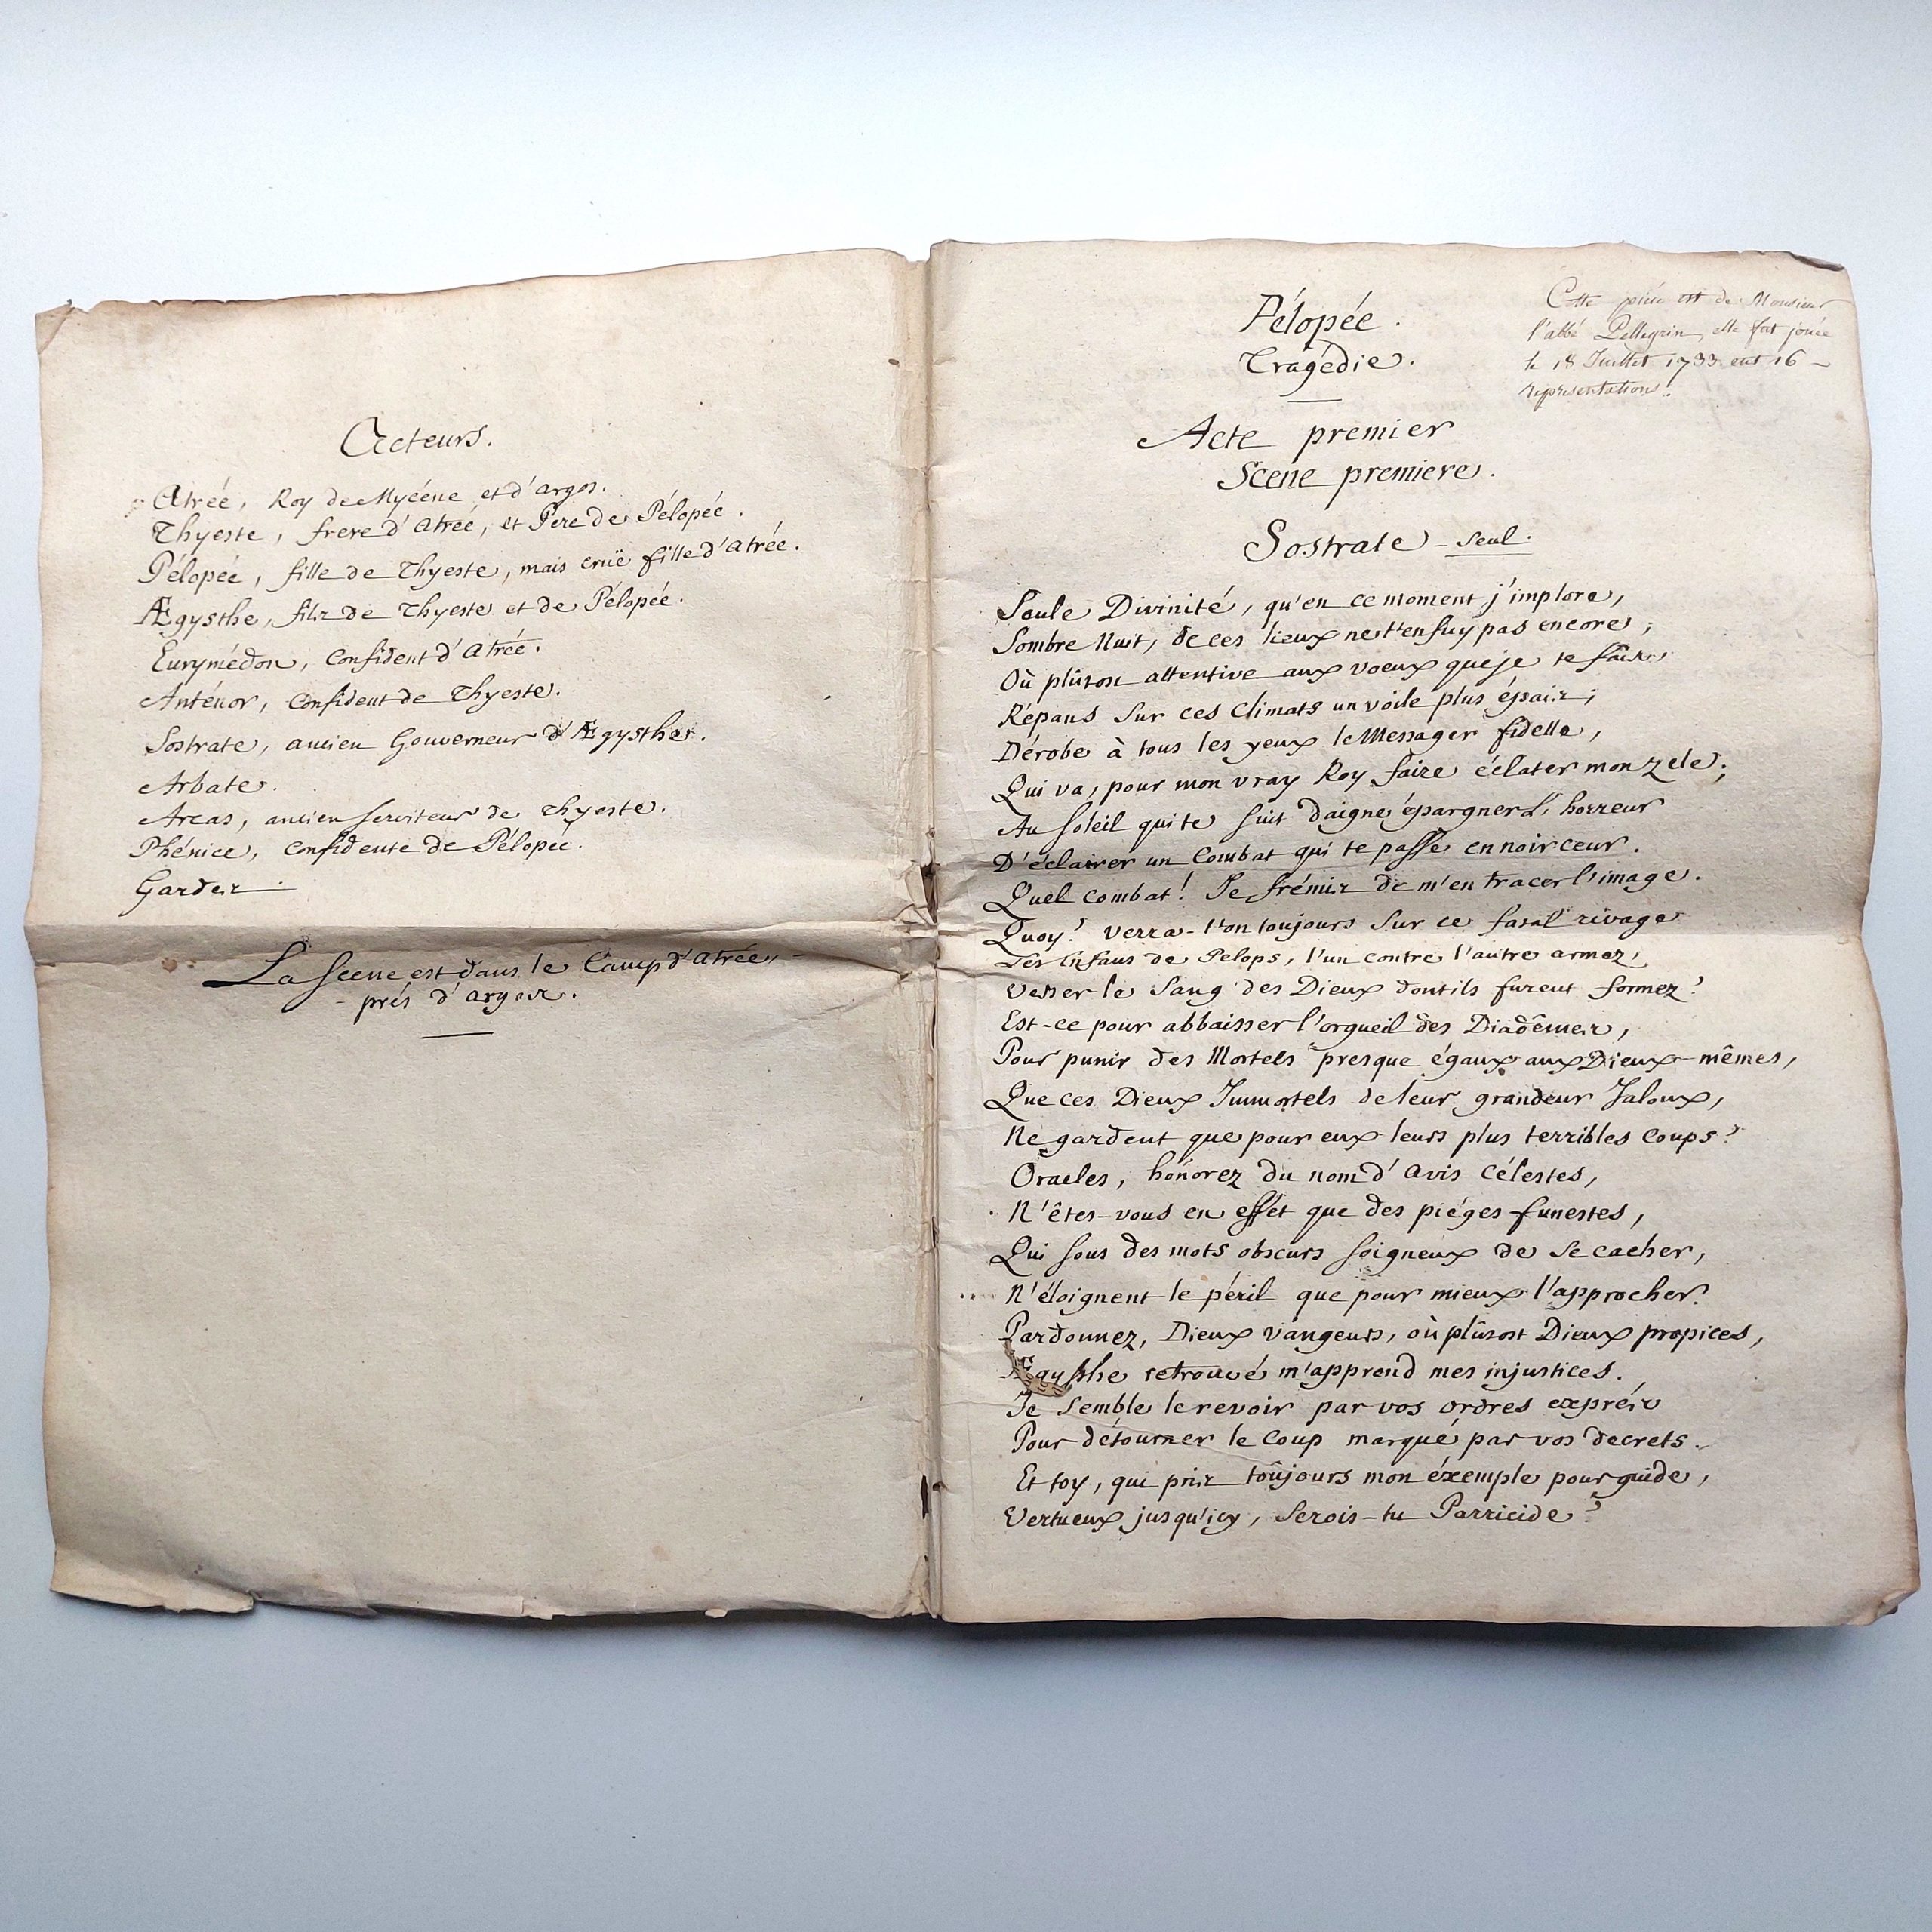 Acteurs.
Atrée, Roy de Mycéne et d'argos.
Thyeste, frere d'Atreé, et Pere de Pélopée.
Pélopée, fille de Thyeste, mais crüe fille d'Atrée.
Ægysthe, fils de Thyeste et de Pélopée.
Eurymédon, Confident d'Atrée.
Anténor, Confident de Thyeste.
Sostrate, ancien Gouverneur d'Ægysthe.
Arbate.
Arcas, ancien serviteur de Thyeste.
Phénice, Confidente de Pélopée.
Gardes.
La Scene est dans le Camp d'Atrée,
prés d'argos.
Pélopée.
Tragédie.
Cette piéce est de Monsieur
l'abbé Pellegrin, elle fut jouée
le 18 Juillet 1733 eut 16
representations.
Acte premier
Scene premiere.
Sostrate - Seul.
Seule Divinité, qu'en ce moment j'implore,
Sombre Nuit, de ces lieux ne t'enfuy pas encore;
Où plûtost attentive aux voeux que je te fais,
Répans Sur ces Climats un voile plus épais;
Dérobe à tous les yeux le Messager fidelle,
Qui va, pour mon vray Roy faire éclater mon zele;
Au Soleil qui te suit daigne épargner L'horreur
D'éclairer un Combat qui te passe en noirceur.
Quel combat! Je frémis de m'en tracer l'image.
Quoy? verra-t'on toujours Sur ce fatal rivage
Les Enfans de Pelops, l'un contre l'autre armez,
Verser le Sang des Dieux dont ils furent formez?
Est-ce pour abbaisser l'orgueil des Diadêmes,
Pour punir des Mortels presque égaux aux Dieux-mêmes,
Que ces Dieux Immortels de leur grandeur Jaloux,
Ne gardent que pour eux leurs plus terribles Coups?
Oracles, honorez du nom d'avis Célestes,
N'êtes-vous en effet que des piéges funestes,
Qui sous des mots obscurs soigneux de Se cacher,
N'éloignent le péril que pour mieux l'approcher?
Pardonnez, Dieux vangeurs, où plûtost Dieux propices,
Ægysthe retrouvé m'apprend mes injustices.
Je Semble le revoir par vos ordres exprés
Pour détourner le Coup marqué par vos decrets.
Et toy, qui pris toûjours mon éxemple pour guide,
Vertueux jusqu'icy, Serois-tu Parricide?